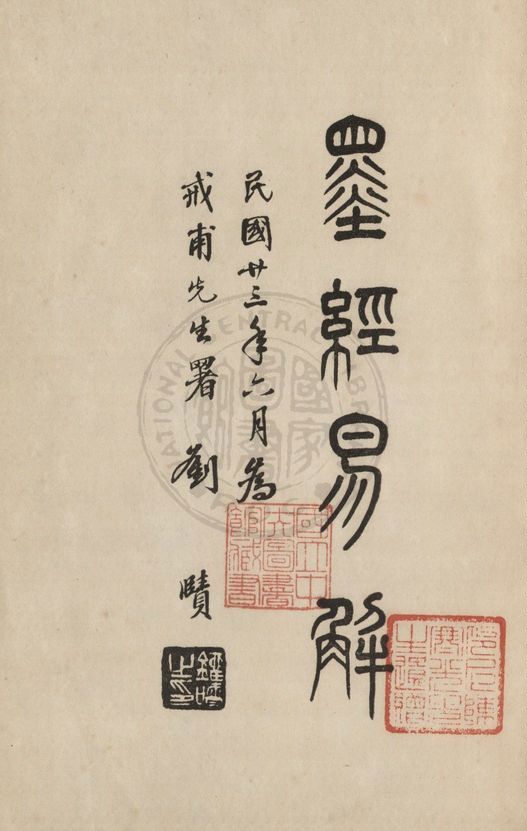 墨經易解
民國廿三年六月為
戒甫先生署 劉賾
國立中央圖書館藏書
NATIONAL CENTRAL LIBRARY
國家圖書館